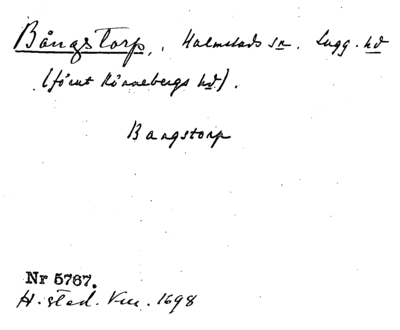 Bångstorp, Halmstads sn. Lugg. hd
(förut Rönnebergs hd).
Bangstorp
Nr 5767.
H. sted. Vm. 1698